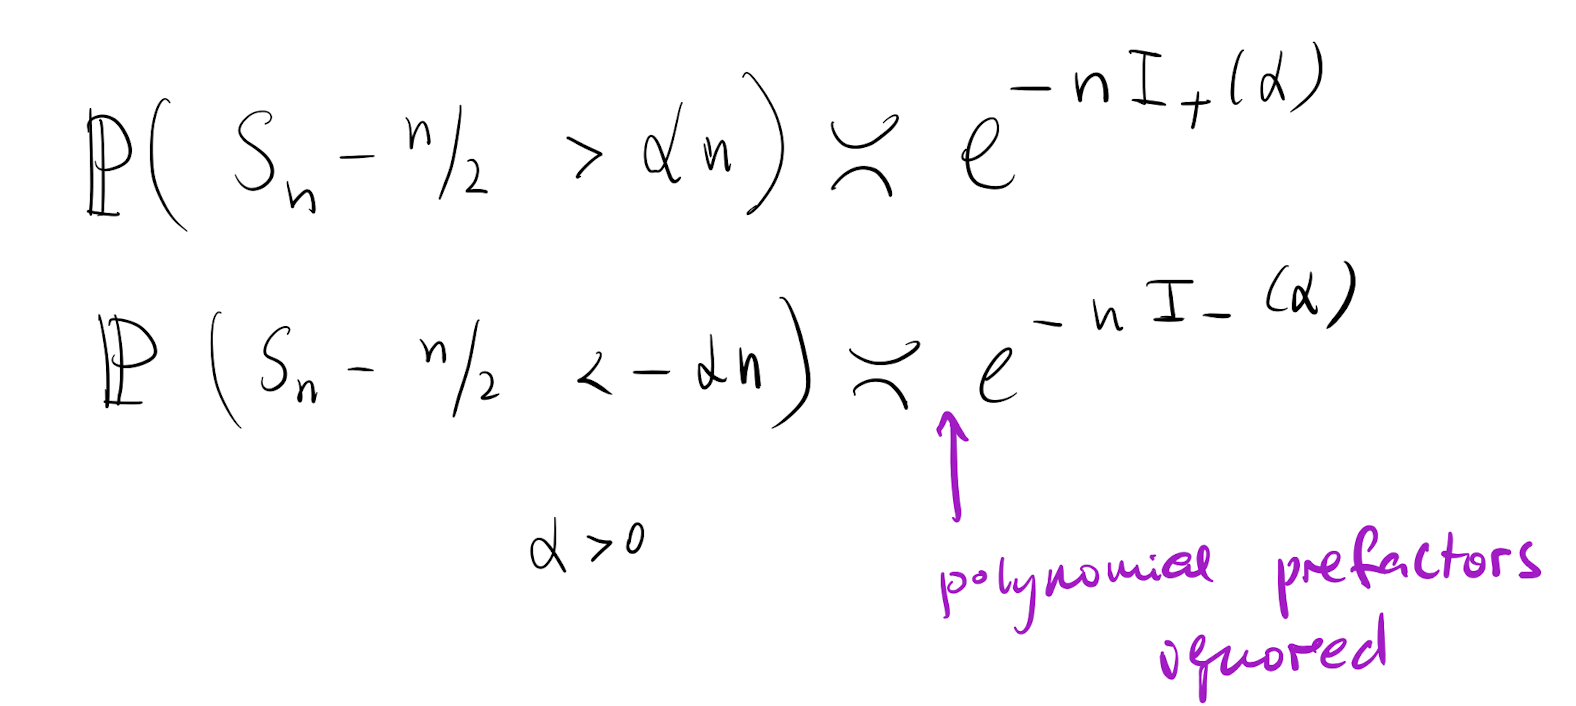 ℙ( Sₙ − n/2 > αn) ≍ e^{−n I₊(α)}
ℙ (Sₙ − n/2 < −αn) ≍ e^{−n I₋(α)}
α > 0
polynomial prefactors
ignored